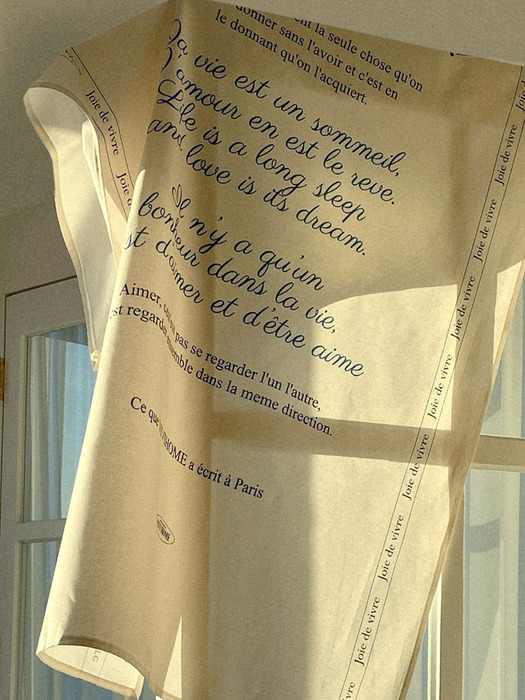 donner sans l'avoir et c'est en
le donnant qu'on l'acquiert.
la seule chose qu'on
La vie est un sommeil,
l'amour en est le reve.
Life is a long sleep
and love is its dream.
Il n'y a qu'un
bonheur dans la vie,
st d'aimer et d'être aime
Aimer, pas se regarder l'un l'autre,
st regarder ensemble dans la meme direction.
Ce que a écrit à Paris
Joie de vivre
Joie d
Joie de vivre
Joie de vivre
Joie de vivre
Joie de vivre
Joie de vivre
Joie de vivre
Joie de vivre
Joie de vivre